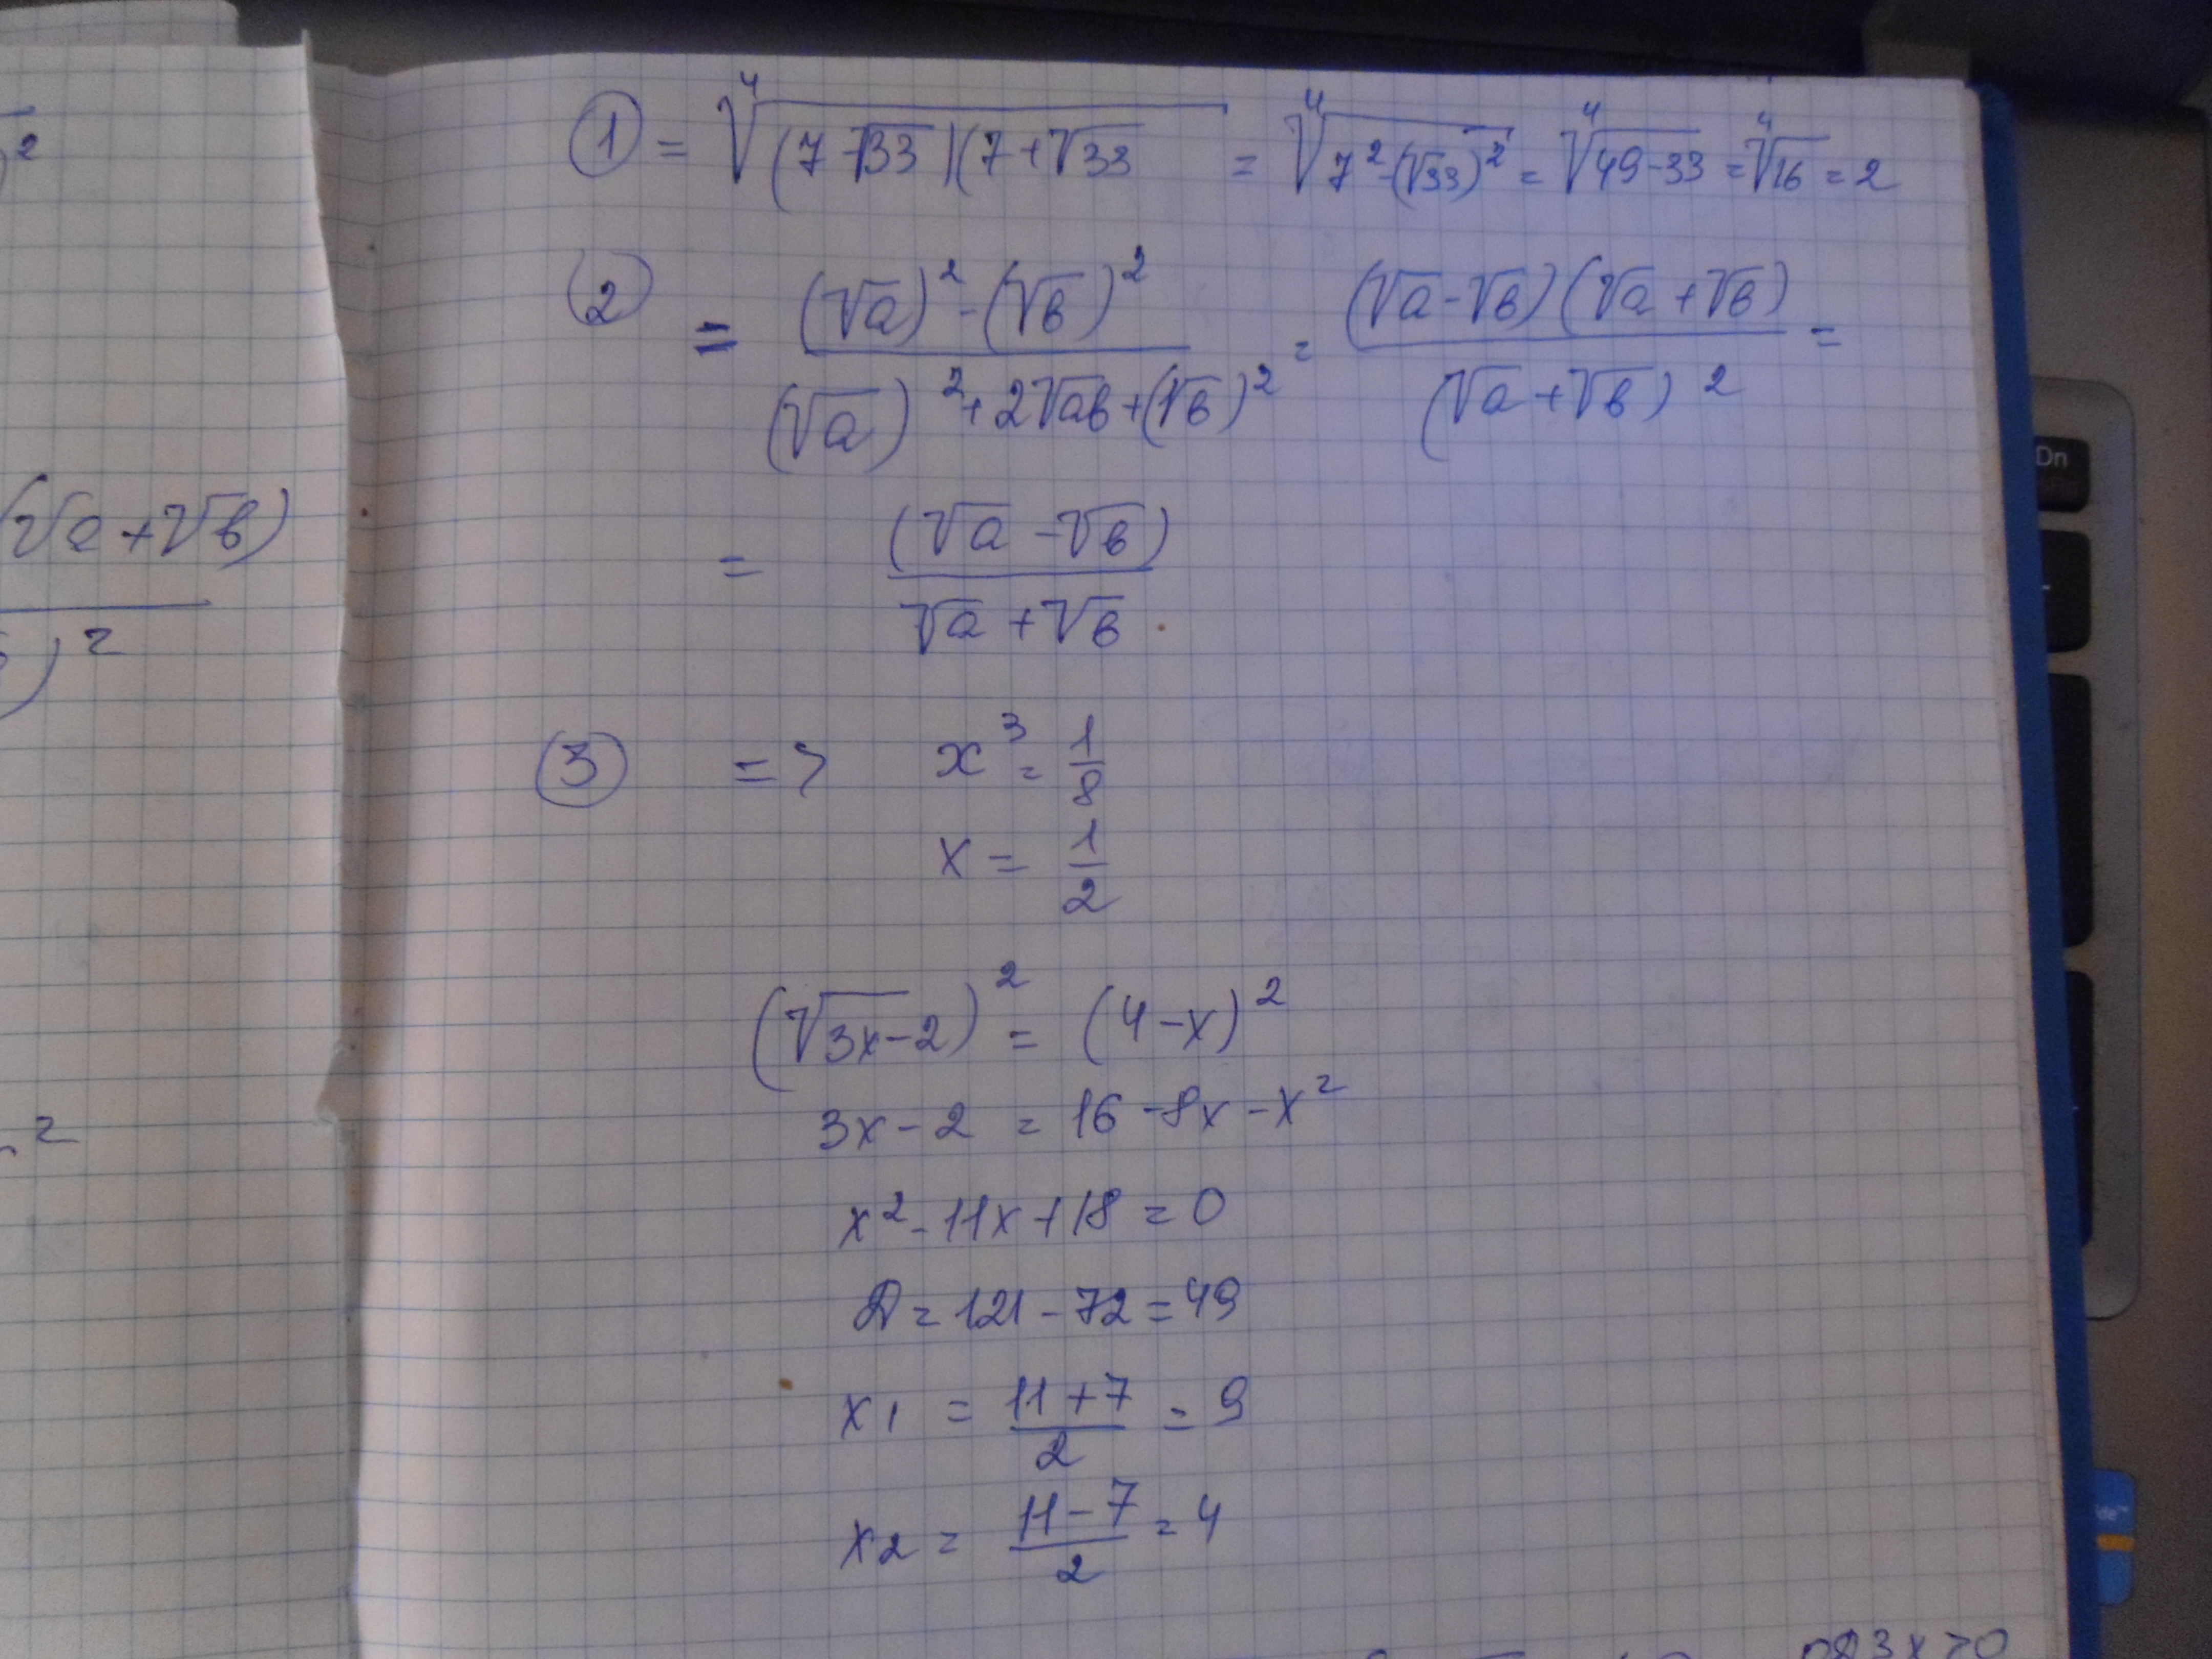 2
(√a+√в)
)²
²
① = ⁴√(7-√33)(7+√33 = ⁴√7²-(√33)² = ⁴√49-33 = ⁴√16 = 2
② = (√a)²-(√в)² / (√a)²+2√aв+(√в)² = (√a-√в)(√a+√в) / (√a+√в)² =
= (√a-√в) / √a+√в
③ => x³ = 1/8
x = 1/2
(√3x-2)² = (4-x)²
3x-2 = 16-8x-x²
x²-11x+18=0
D=121-72=49
x1 = 11+7 / 2 = 9
x2 = 11-7 / 2 = 4
3x>0
Dn